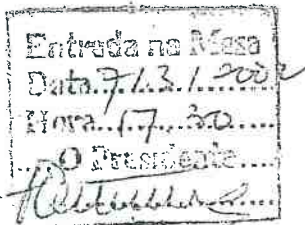 Entrada na Mesa
Data 7/3/2002
Hora 17.30
O Presidente